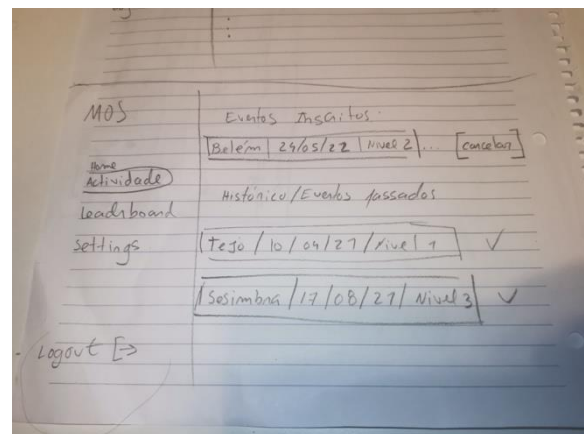 MOS
Home
Actividade
Leadrboard
Settings
Logout
Eventos Inscritos
Belém | 24/05/22 | Nivel 2 | ... [cancelar]
Histórico/Eventos passados
Tejo / 10 / 04 / 21 / Nivel 1
Sesimbra / 17 / 08 / 21 / Nivel 3